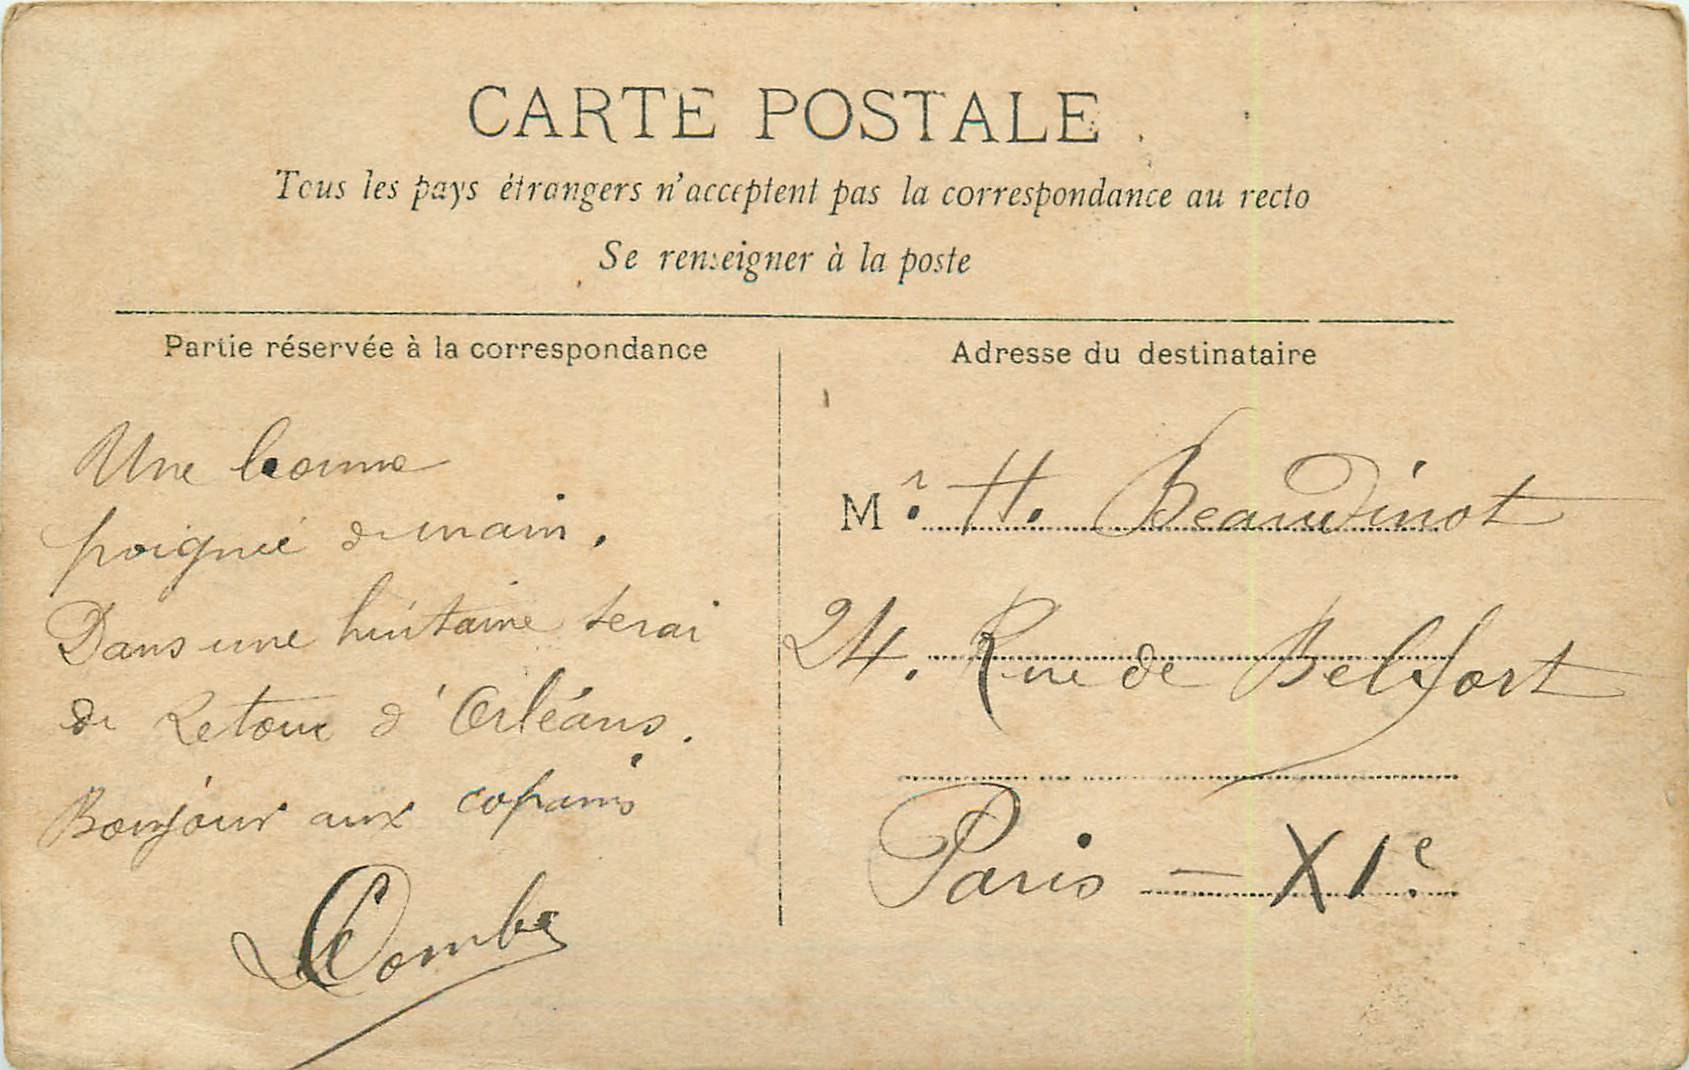 CARTE POSTALE
Tous les pays étrangers n'acceptent pas la correspondance au recto
Se renseigner à la poste
Partie réservée à la correspondance
Une bonne
poignée de main.
Dans une huitaine serai
de Retour d'Orléans.
Bonjour aux copains
Adresse du destinataire
Mr. H. Beaudinot
24. Rue de Belfort
Paris - XIe.